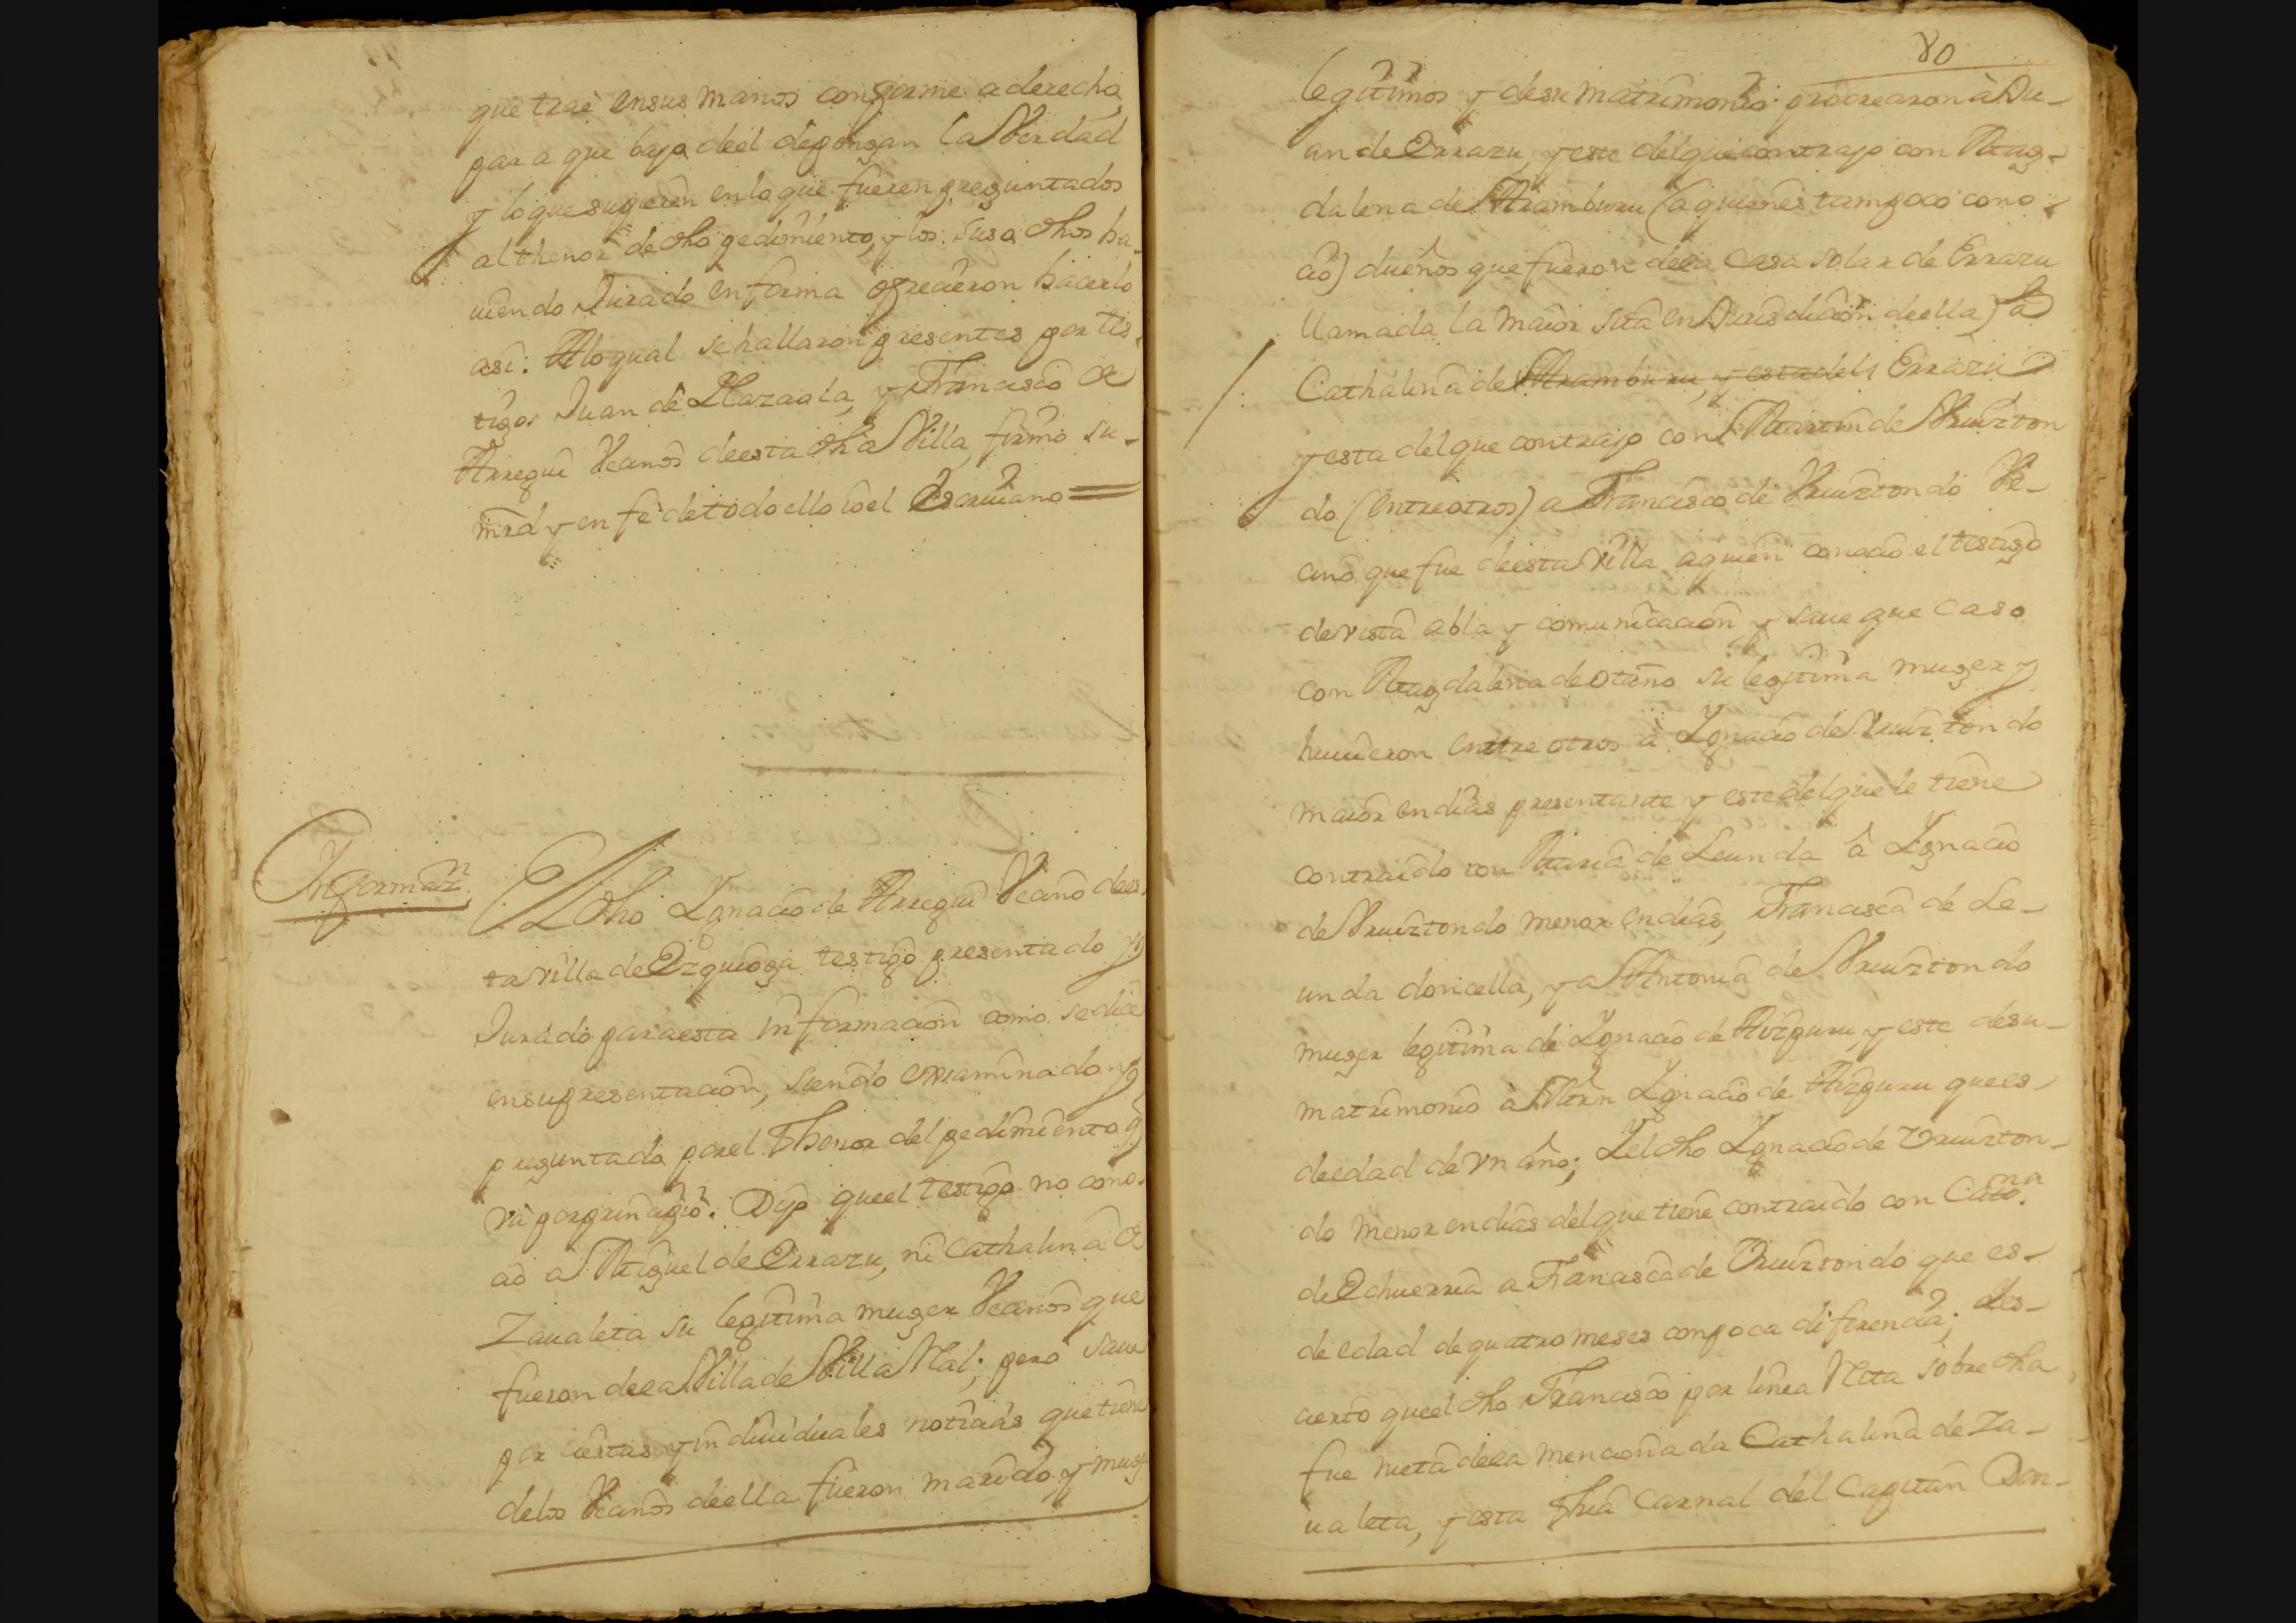 que trae en sus manos conforme a derecho,
para que bajo de el depongan la Verdad
y lo que supieren en lo que fueren preguntados
al thenor de dho pedimiento, y los susodhos ha-
uiendo Jurado en forma ofrecieron hacerlo
asi: A lo qual se hallaron presentes por tes-
tigos Juan de Plazaola, y Francisco de
Arregui Vecinos de esta dha Villa, firmó su
mrd y en fe de todo ello io el Escriuano =
Informaz.n
El dho Ignacio de Arregui Vecino de es-
ta villa de Ezquioga testigo presentado y
Jurado para esta informacion como se dice
en su presentacion, siendo examinado y
preguntado por el Thenor del pedimiento q
va por prinzipio. Dijo que el testigo no cono-
cio a Miguel de Errazu, ni Cathalina de
Zaualeta su legitima muger Vecinos que
fueron de la Villa de Villa Rial; pero saue
por ciertas y indiuiduales noticias que tiene
de los Vecinos de ella fueron marido y muger
80
legitimos y de su matrimonio procrearon à Ju-
an de Errazu, y este del que contrajo con Mag-
dalena de Aramburu (a quienes tampoco cono-
cio) dueños que fueron de la Casa solar de Errazu
llamada la maior sita en Jurisdicion de ella) a
Cathalina de Aramburu, y esta del Errazu
y esta del que contrajo con Martin de Vruizton
do (entre otros) a Francisco de Vruiztondo Ve-
cino que fue de esta Villa a quien conocio el testigo
de vista abla y comunicacion y saue que caso
con Magdalena de otaño su legitima muger y
huuieron entre otros à Ignacio de Vruiztondo
maior en dias presentante y este del que le tiene
contraido con Maria de Leunda â Ignacio
de Vruiztondo menor en dias, Francisca de Le-
unda doncella, y a Antonia de Vruiztondo
muger legitima de Ignacio de Aizpuru, y este de su
matrimonio à Mrn Ignacio de Aizpuru que es
de edad de vn año; Y el dho Ignacio de Vruizton-
do menor en dias del que tiene contraido con Cat.na
de Echuerria a Francisco de Vruiztondo que es
de edad de quatro meses con poca diferencia; Y es
cierto que el dho Francisco por linea Recta sobre dha
fue nieto de la mencionada Cathalina de Za-
ualeta, y esta Thia carnal del Capitan Don